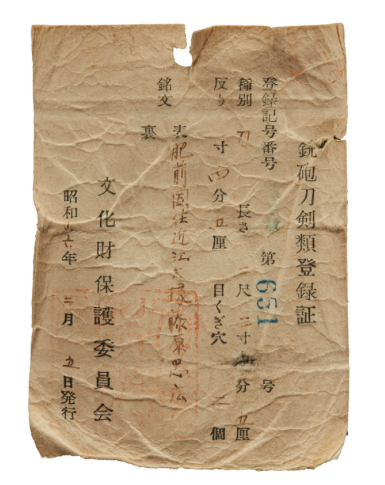 銃砲刀剣類登録証
登録記号番号 第 651 号
種別 刀 長さ 尺 寸 分 五厘
反り 寸 四分五厘 目くぎ穴 個
銘文 表 肥前国住近江大掾藤原忠広
裏
文化財保護委員会
昭和 六年 三月 五日発行